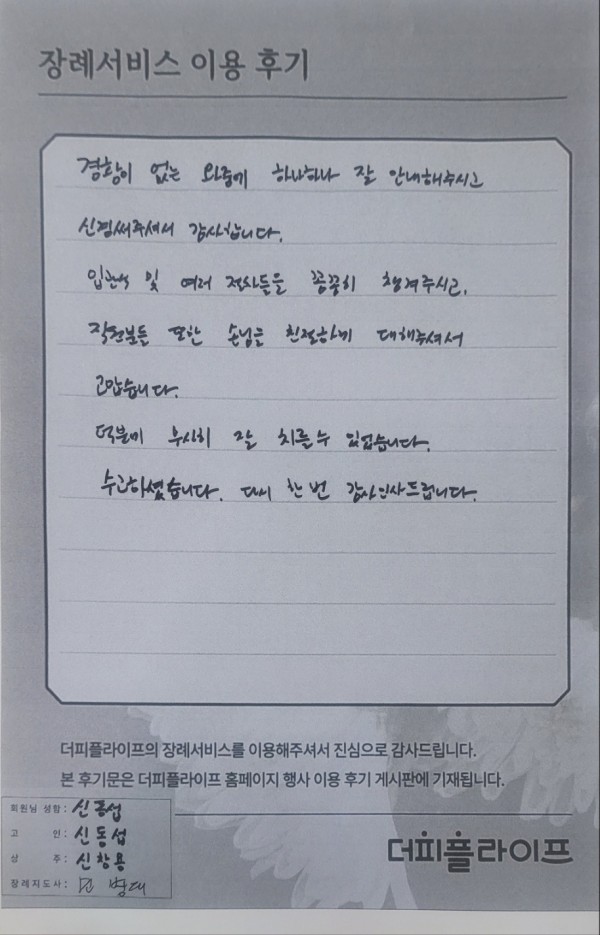 장례서비스 이용 후기
경황이 없는 와중에 하나하나 잘 안내해주시고
신경써주셔서 감사합니다.
입관식 및 여러 절차들을 꼼꼼히 챙겨주시고,
직원분들 또한 손님을 친절하게 대해주셔서
고맙습니다.
덕분에 무사히 잘 치를 수 있었습니다.
수고하셨습니다. 다시 한 번 감사인사드립니다.
더피플라이프의 장례서비스를 이용해주셔서 진심으로 감사드립니다.
본 후기문은 더피플라이프 홈페이지 행사 이용 후기 게시판에 기재됩니다.
회원님 성함: 신동섭
고 인: 신동섭
상 주: 신창용
장례지도사:
더피플라이프